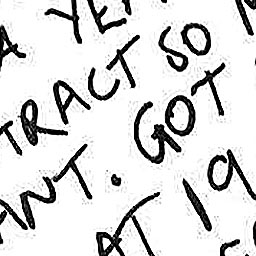 A YE
TRACT SO
ANT. GOT
AT 19